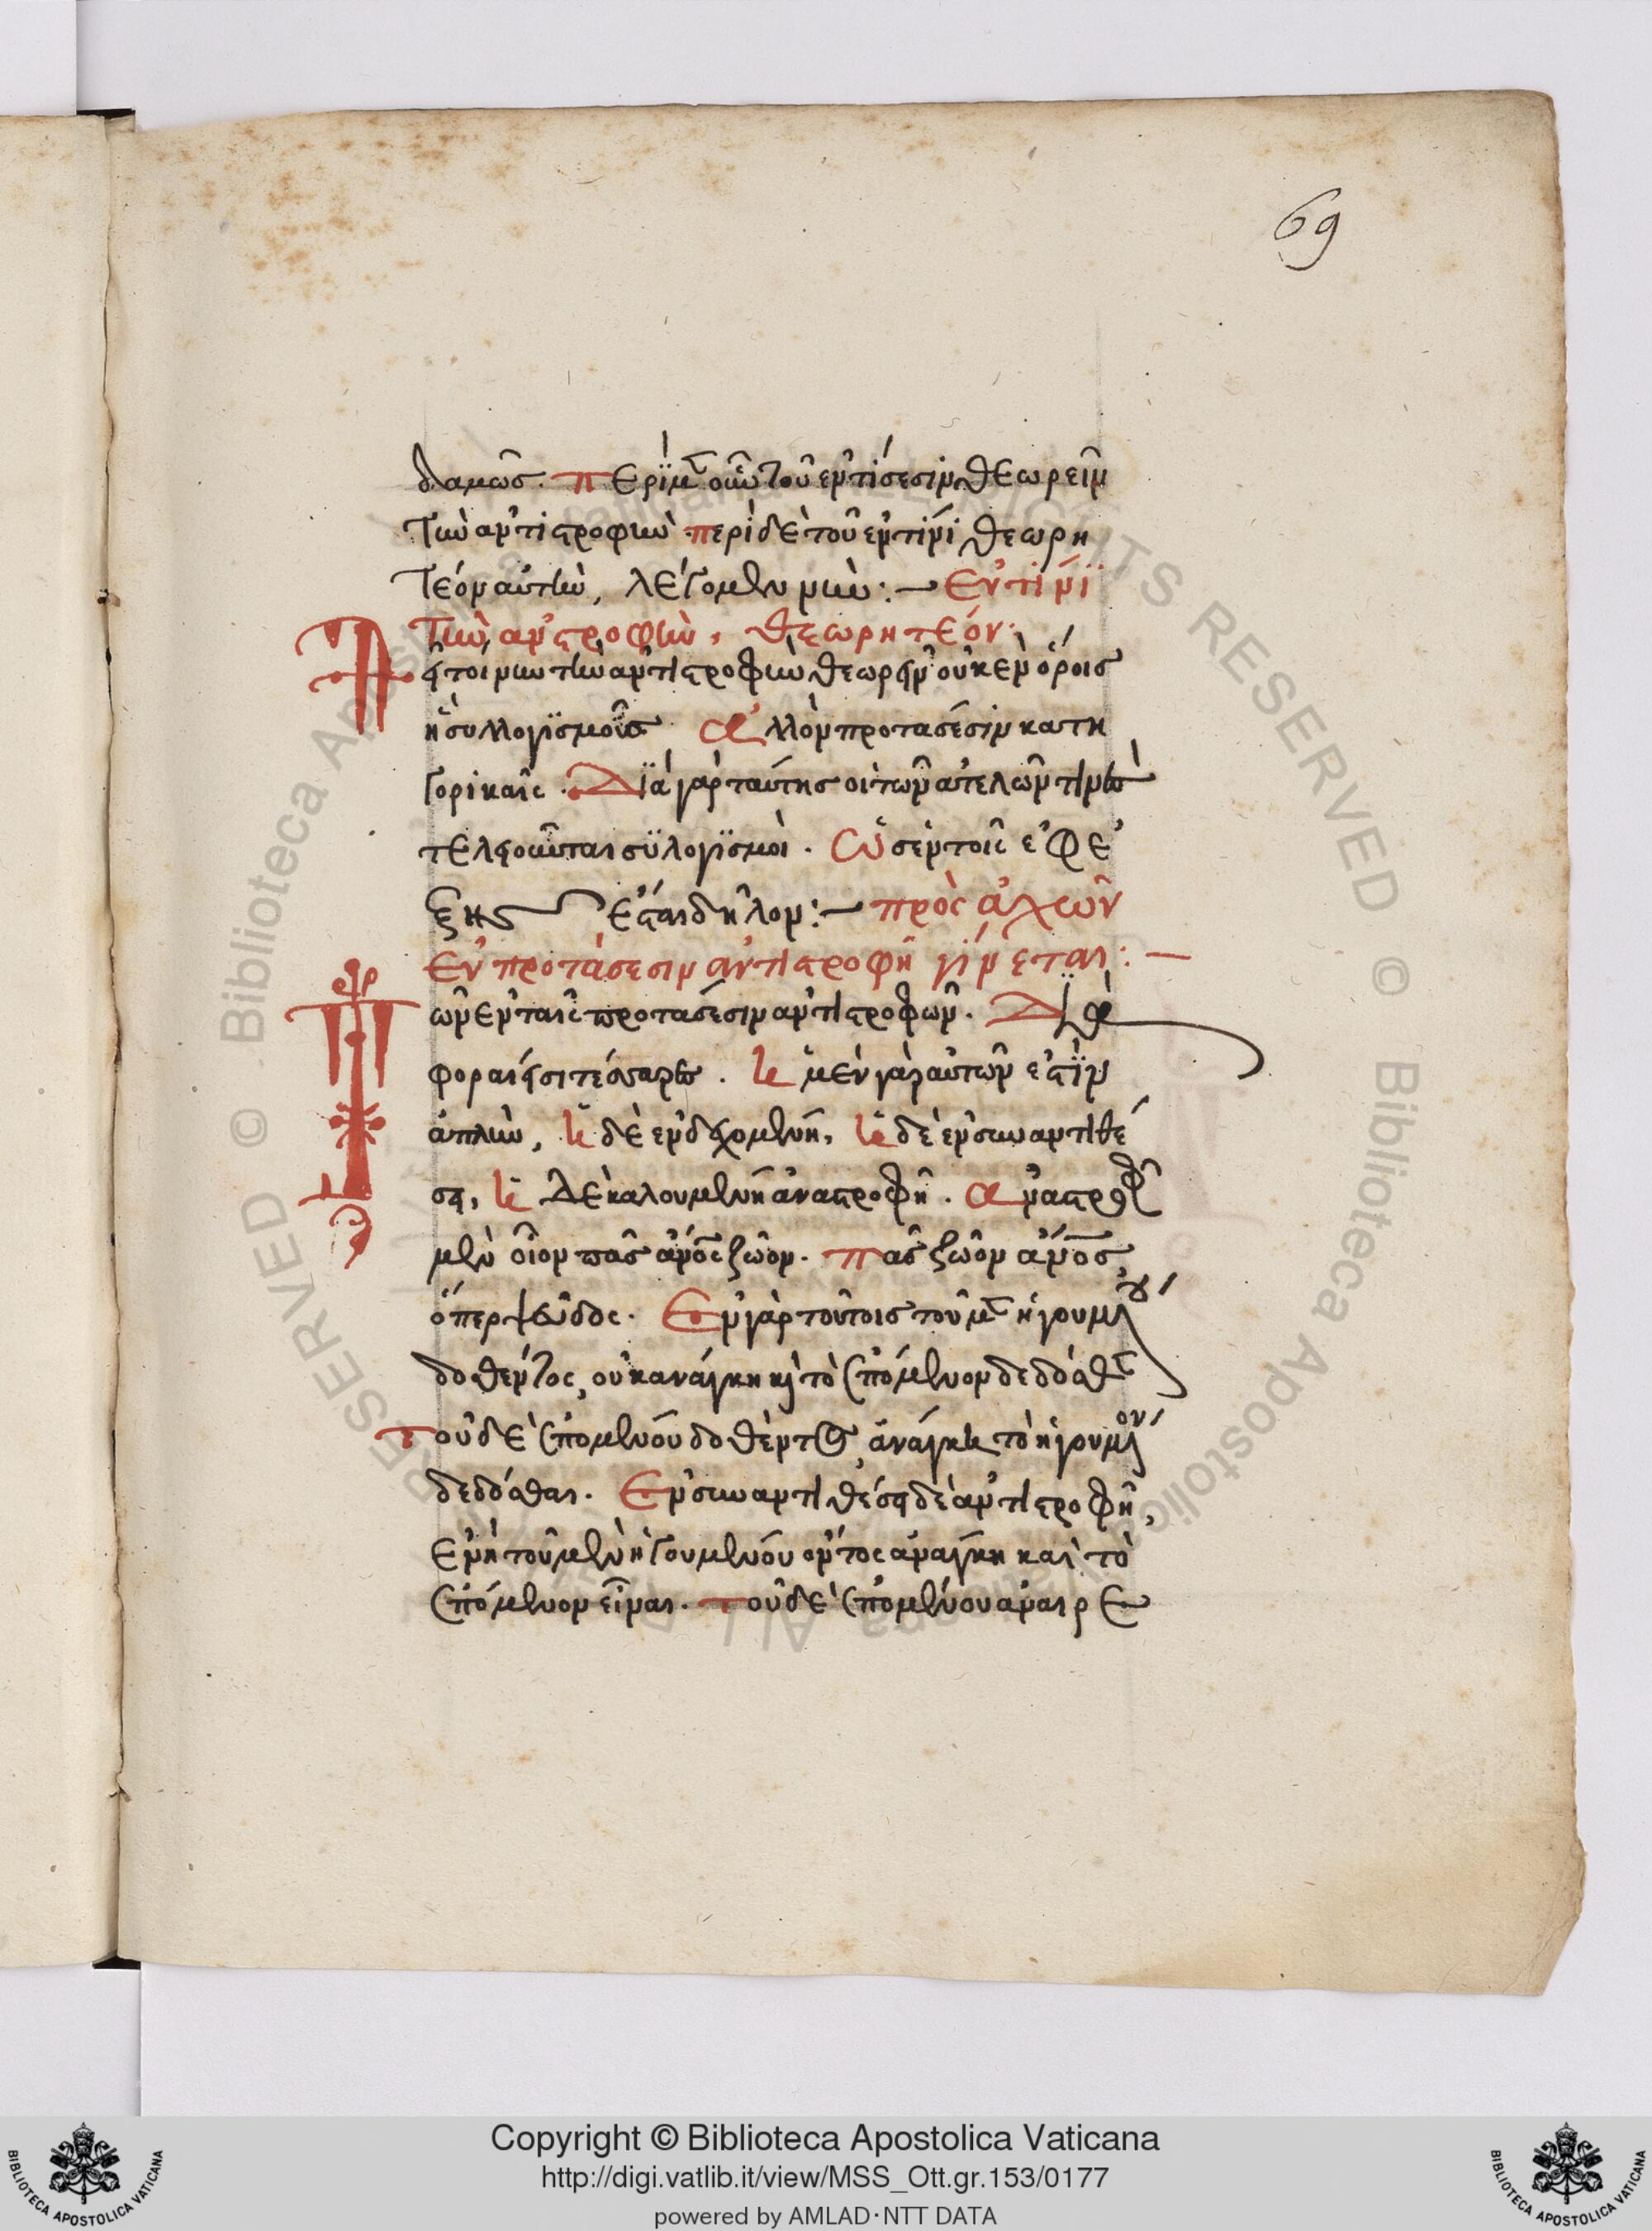 69
δαμῶς. περὶ μὲν οὖν τοῦ ἐν τίσεσιν θεωρεῖν
τὴν ἀντιστροφὴν περὶ δὲ τοῦ ἐν τίνι θεωρη
τέον αὐτὴν, λέγομεν νῦν:— Ἐν τίνι
τὴν ἀντιστροφὴν, θεωρητέον·
Δεῖ τοίνυν τὴν ἀντιστροφὴν θεωρεῖν οὐκ ἐν ὅροις
ἢ συλλογϊσμοῖς ἀλλ' ἐν προτάσεσιν κατη
γορικαῖς. Διὰ γὰρ ταύτης οἱ τῶν ἀτελῶν τινὲς
τελειοῦνται συλογϊσμοὶ. ὡς ἐν τοῖς ἐφε
ξῆς ἔσται δῆλον:— πρὸς
ἐν προτάσεσιν ἀντιστροφὴ γίνεται:—
Τῶν ἐν ταῖς προτάσεσιν ἀντιστροφῶν. Δια
φοραί εἰσι τέσσαρες. ἡ μὲν γὰρ αὐτῶν ἐστϊν
ἁπλῆ, ἡ δὲ ἐνδεχομένη, ἡ δὲ ἐν συναντιθέ
σει, ἡ δὲ καλουμένη ἀναστροφὴ. ἀναστροφὴ
μὲν οἷον πᾶς ἄνος ζῶον. πᾶν ζῶον ἄνος,
ὅπερ ψεῦδος. Ἐν γὰρ τούτοις τοῦ μὲν ἡγουμένου
δοθέντος, οὐκ ἀνάγκη καὶ τὸ ἑπόμενον δεδόσθαι
τοῦ δὲ ἑπομένου δοθέντος, ἀνάγκη τὸ ἡγούμενον
δεδόσθαι. Ἐν συναντιθέσει δὲ ἀντιστροφὴ,
ἐν ᾗ τοῦ μὲν ἡγουμένου ὄντος ἀνάγκη καὶ τὸ
ἑπόμενον εἶναι. τοῦ δὲ ἑπομένου ἀναιρε
Copyright © Biblioteca Apostolica Vaticana
http://digi.vatlib.it/view/MSS_Ott.gr.153/0177
powered by AMLAD·NTT DATA